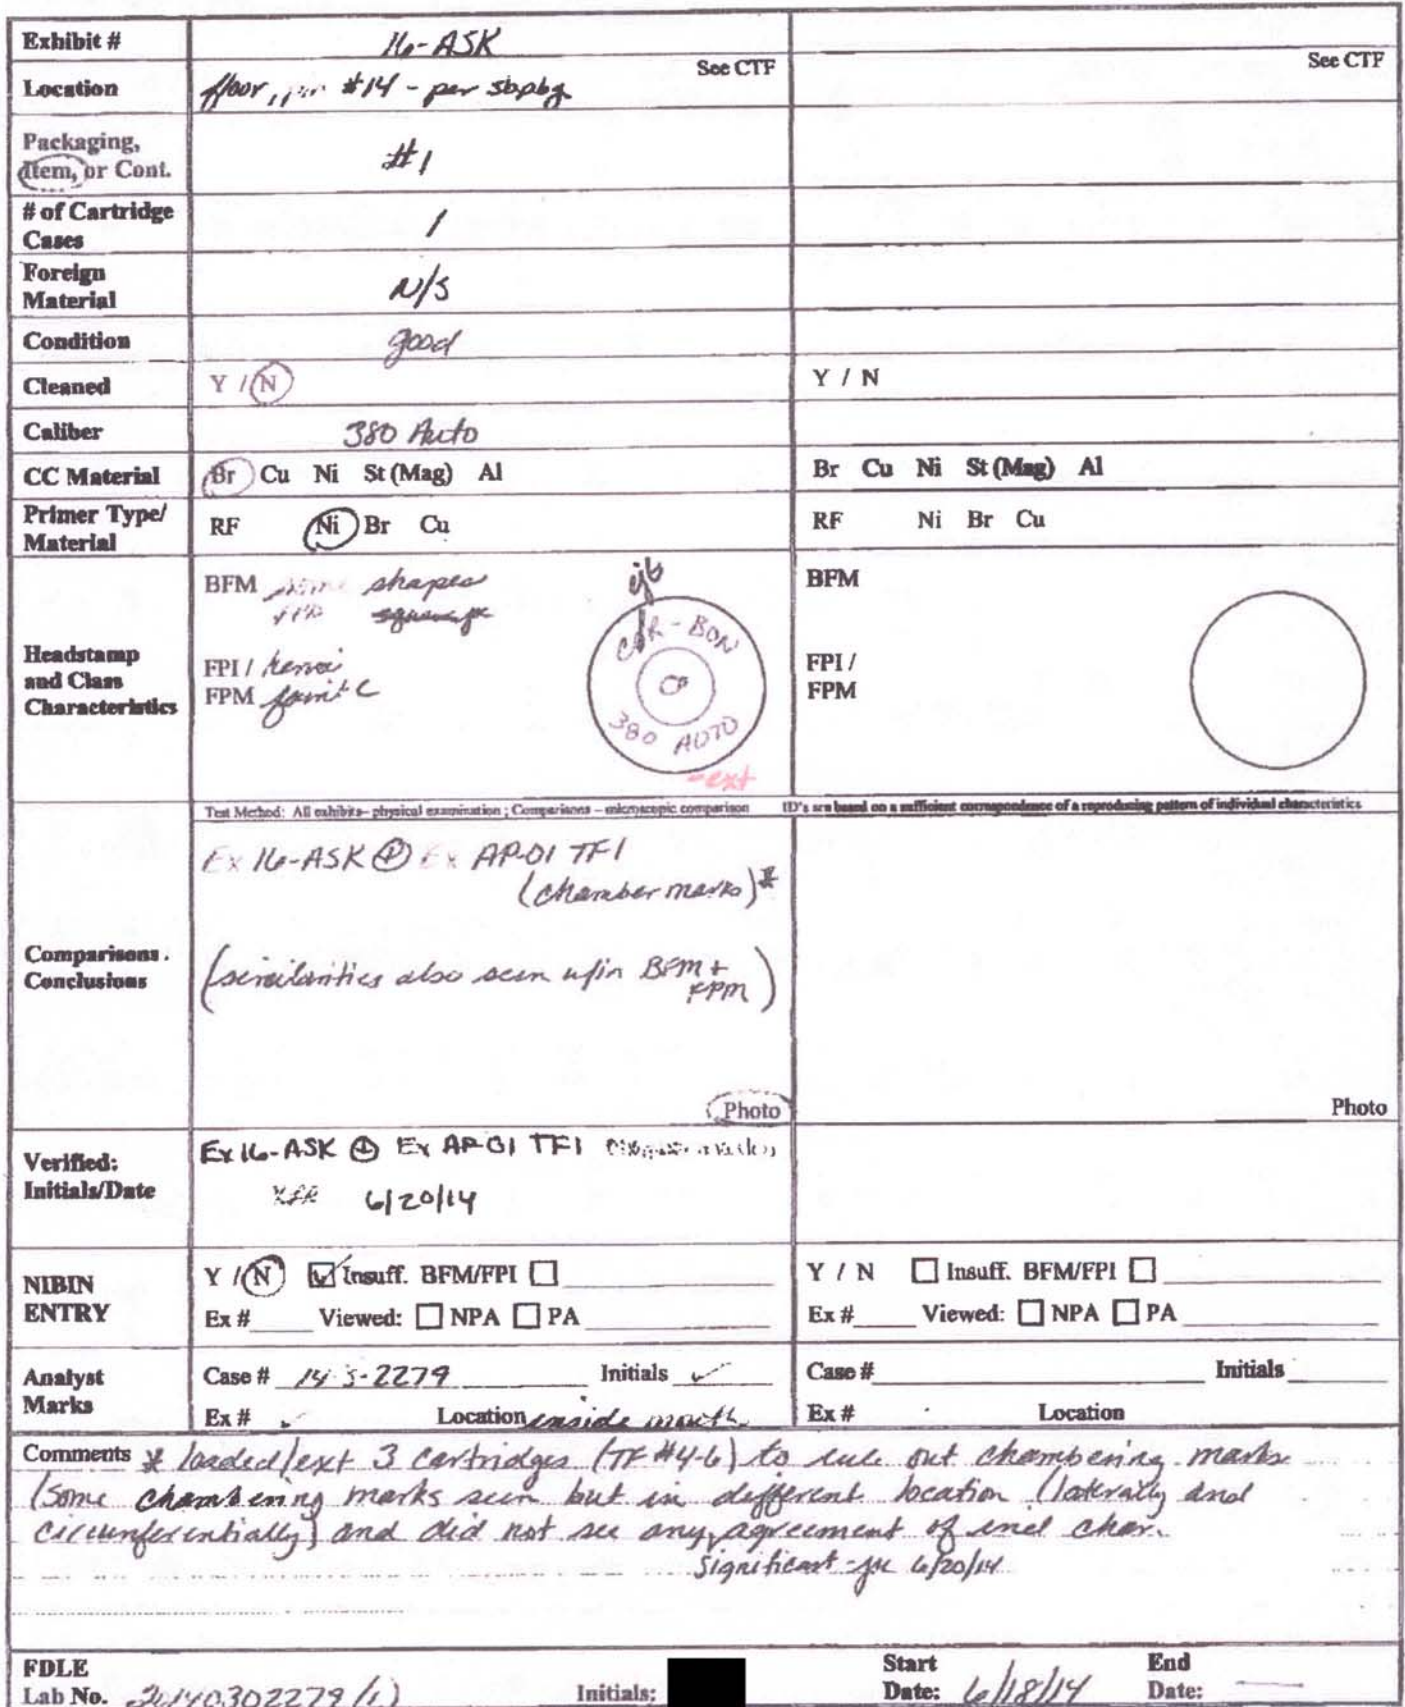 Exhibit # 16-ASK
See CTF
See CTF
Location floor, #14 - per sbpbg
Packaging,
Item, or Cont. #1
# of Cartridge
Cases 1
Foreign
Material N/S
Condition good
Cleaned Y / N Y / N
Caliber 380 Auto
CC Material Br Cu Ni St (Mag) Al Br Cu Ni St (Mag) Al
Primer Type/
Material RF Ni Br Cu RF Ni Br Cu
Headstamp
and Class
Characteristics
BFM some shapes
FPI /
FPM faint C
ejt
COR-BON
380 AUTO
-ext
BFM
FPI /
FPM
Test Method: All exhibits– physical examination ; Comparisons – microscopic comparison ID's are based on a sufficient correspondence of a reproducing pattern of individual characteristics
Comparisons .
Conclusions
Ex 16-ASK + Ex AP-01 TF1
(chamber marks)*
(similarities also seen w/in BFM +
FPM)
Photo
Photo
Verified:
Initials/Date
Ex 16-ASK + Ex AP-01 TF1
6/20/14
NIBIN
ENTRY
Y / N ☑ Insuff. BFM/FPI ☐
Ex # Viewed: ☐ NPA ☐ PA
Y / N ☐ Insuff. BFM/FPI ☐
Ex # Viewed: ☐ NPA ☐ PA
Analyst
Marks
Case # 14-S-2279 Initials ✓
Ex # ✓ Location inside mouth
Case # Initials
Ex # Location
Comments * loaded/ext 3 cartridges (TF #4-6) to rule out chambering marks
(some chambering marks seen but in different location (laterally and
circumferentially) and did not see any agreement of ind char.
significant - jk 6/20/14
FDLE
Lab No. 20140302279 (1) Initials:
Start
Date: 6/18/14
End
Date: